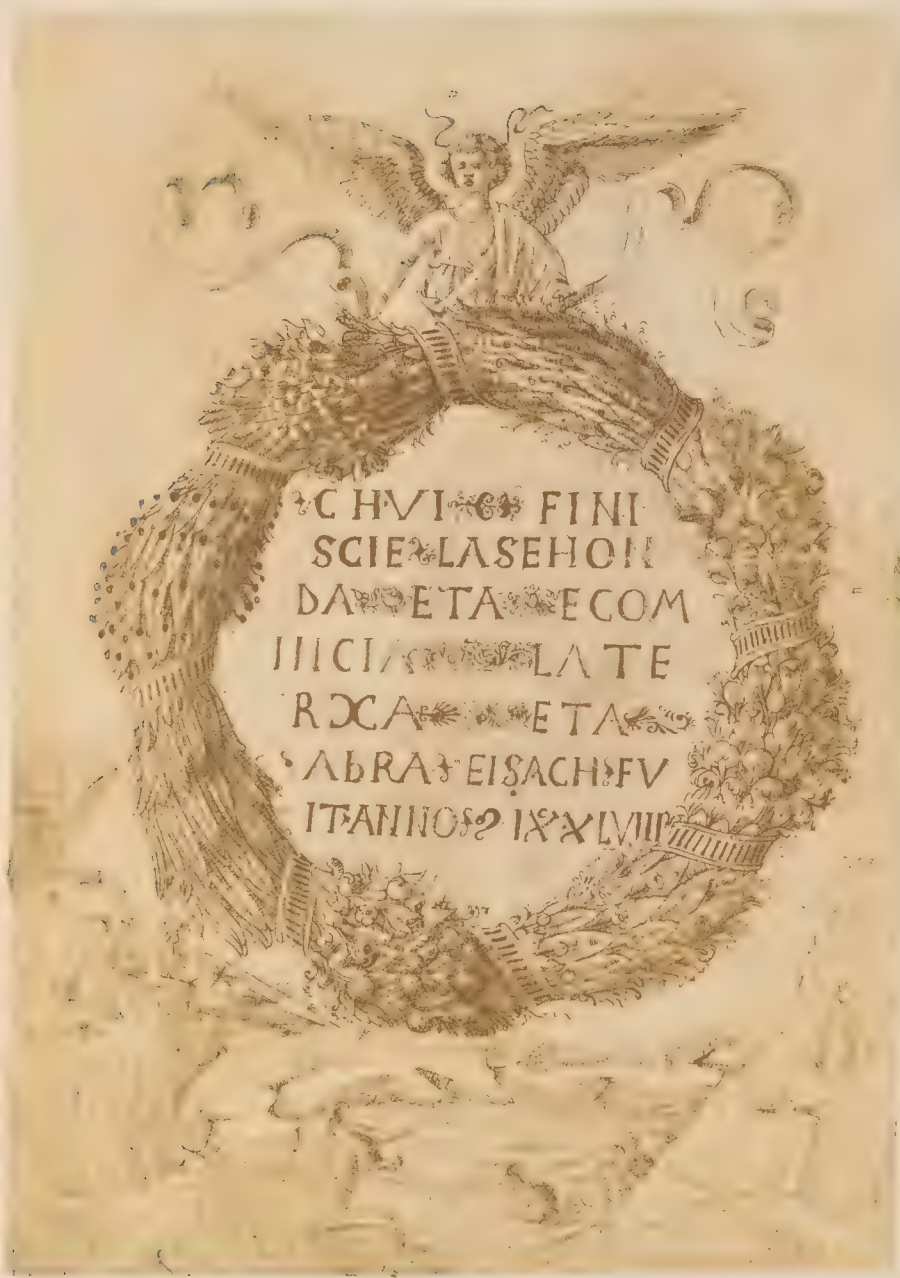 CHVI FINI
SCIE LASEHON
DA ETA ECOM
IIICIA LATE
RXCA ETA
ABRA EISACH FV
IT ANNOS